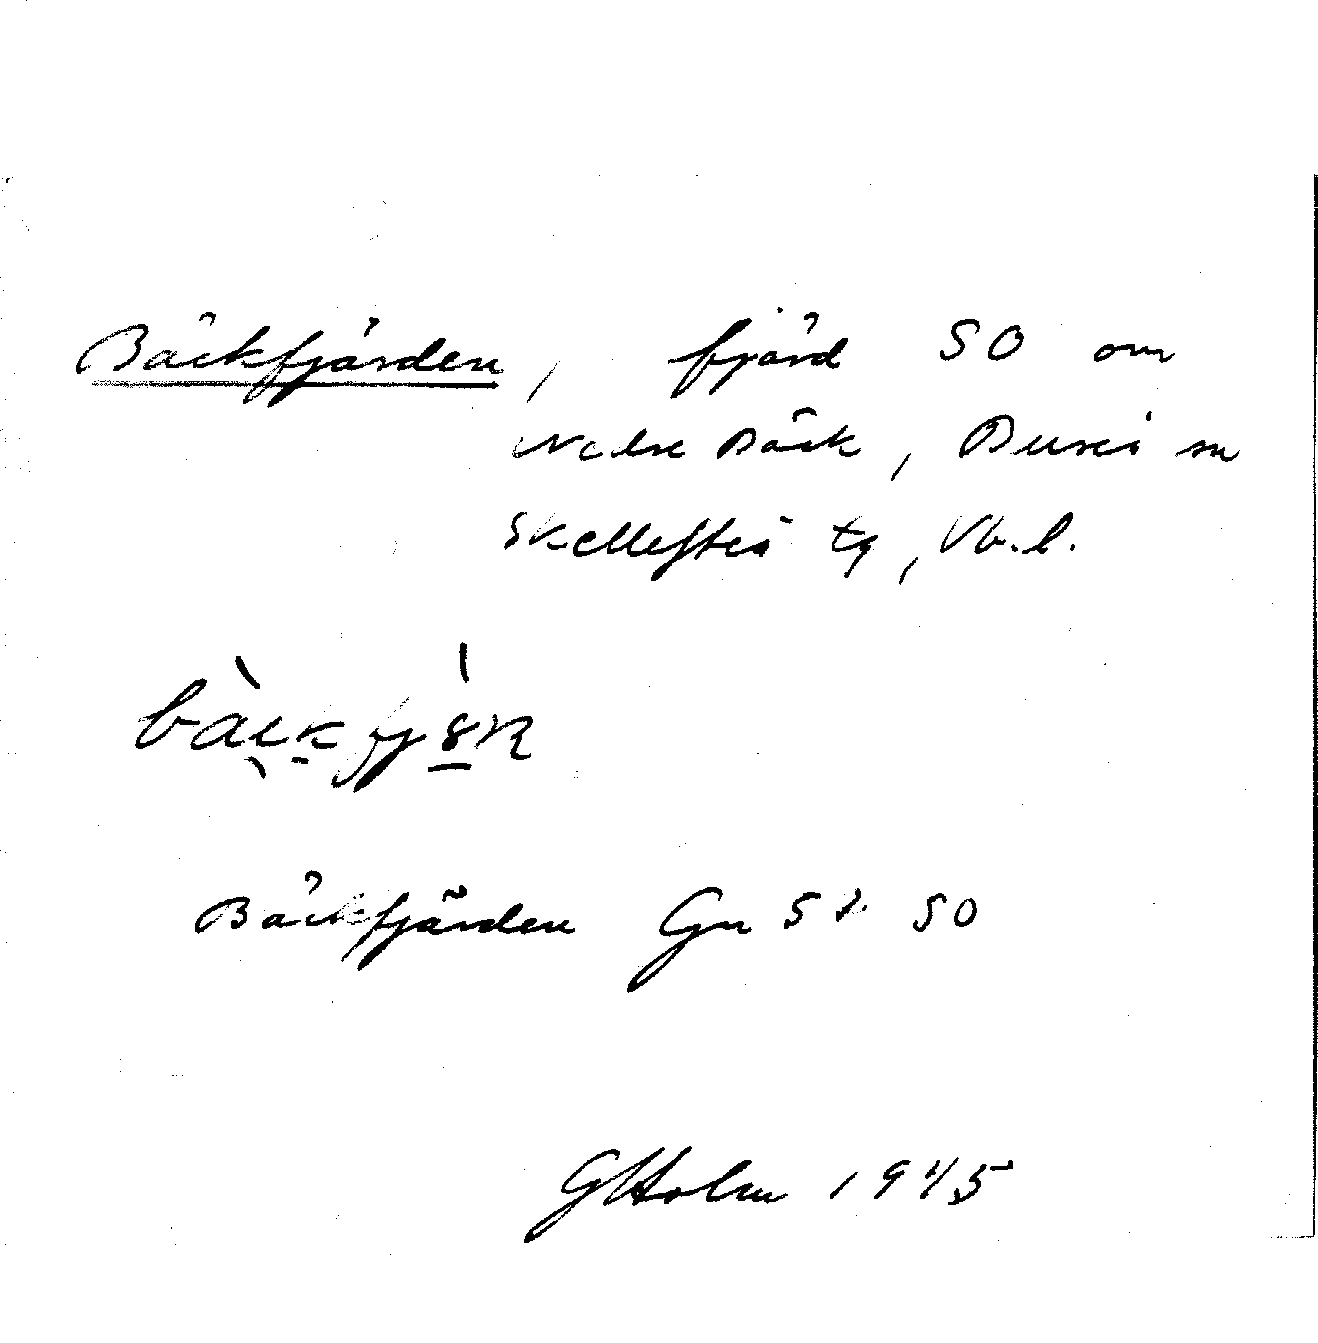 Bäckfjärden, fjärd SO om
Nedre Bäck, Bureå sn
Skellefteå tg, Vb.l.
Bäckfjärden Gn SV SO
GHolm 1945